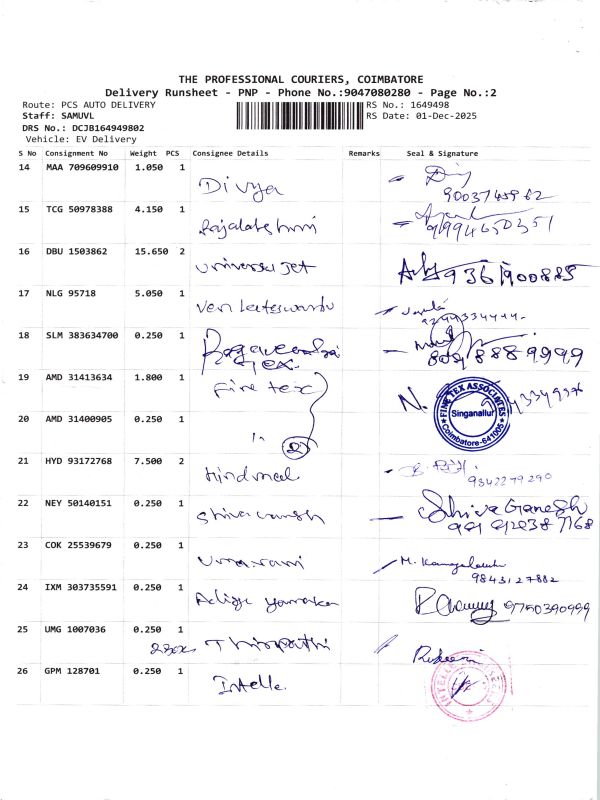 THE PROFESSIONAL COURIERS, COIMBATORE
Delivery Runsheet - PNP - Phone No.:9047080280 - Page No.:2
Route: PCS AUTO DELIVERY
RS No.: 1649498
Staff: SAMUVL
RS Date: 01-Dec-2025
DRS No.: DCJB164949802
Vehicle: EV Delivery
S No Consignment No Weight PCS Consignee Details Remarks Seal & Signature
14 MAA 709609910 1.050 1 Divya
9003745962
15 TCG 50978388 4.150 1 Rajalakshmi
9994650351
16 DBU 1503862 15.650 2 universal jet
9361900885
17 NLG 95718 5.050 1 Venkateswara
18 SLM 383634700 0.250 1 Ragavendra
tex.
8098889999
19 AMD 31413634 1.800 1 Fine tex
N.
FINE TEX ASSOCIATES
Singanallur
Coimbatore-641005
20 AMD 31400905 0.250 1
21 HYD 93172768 7.500 2 Hindmeal
9842279290
22 NEY 50140151 0.250 1 Shiva ganesh
Shiva Ganesh
23 COK 25539679 0.250 1 Umarani
M. Kamalaveni
9843127882
24 IXM 303735591 0.250 1
9750390999
25 UMG 1007036 0.250 1 Thirupathi
26 GPM 128701 0.250 1 Intelle.